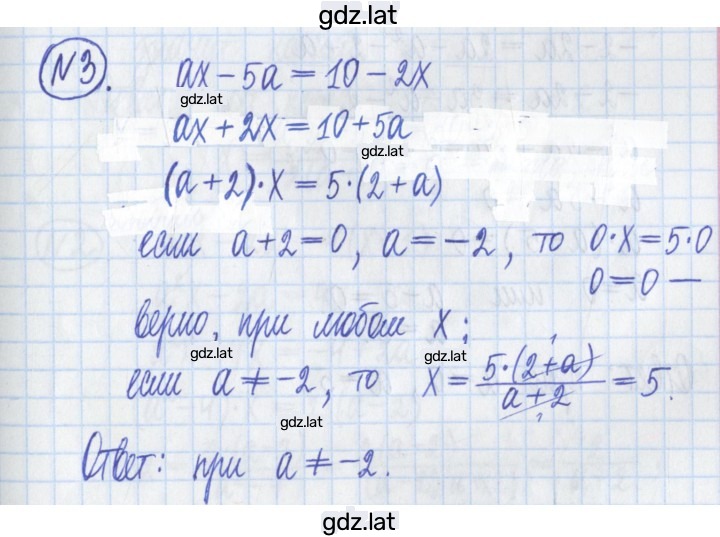 gdz.lat
№3. ax – 5a = 10 – 2x
gdz.lat
ax + 2x = 10 + 5a
gdz.lat
(a + 2)·x = 5·(2 + a)
если a + 2 = 0, a = –2, то 0·x = 5·0
0 = 0 —
верно, при любом x;
gdz.lat
gdz.lat
если a ≠ –2, то x = 5·(2+a)/a+2 = 5.
gdz.lat
Ответ: при a ≠ –2.
gdz.lat